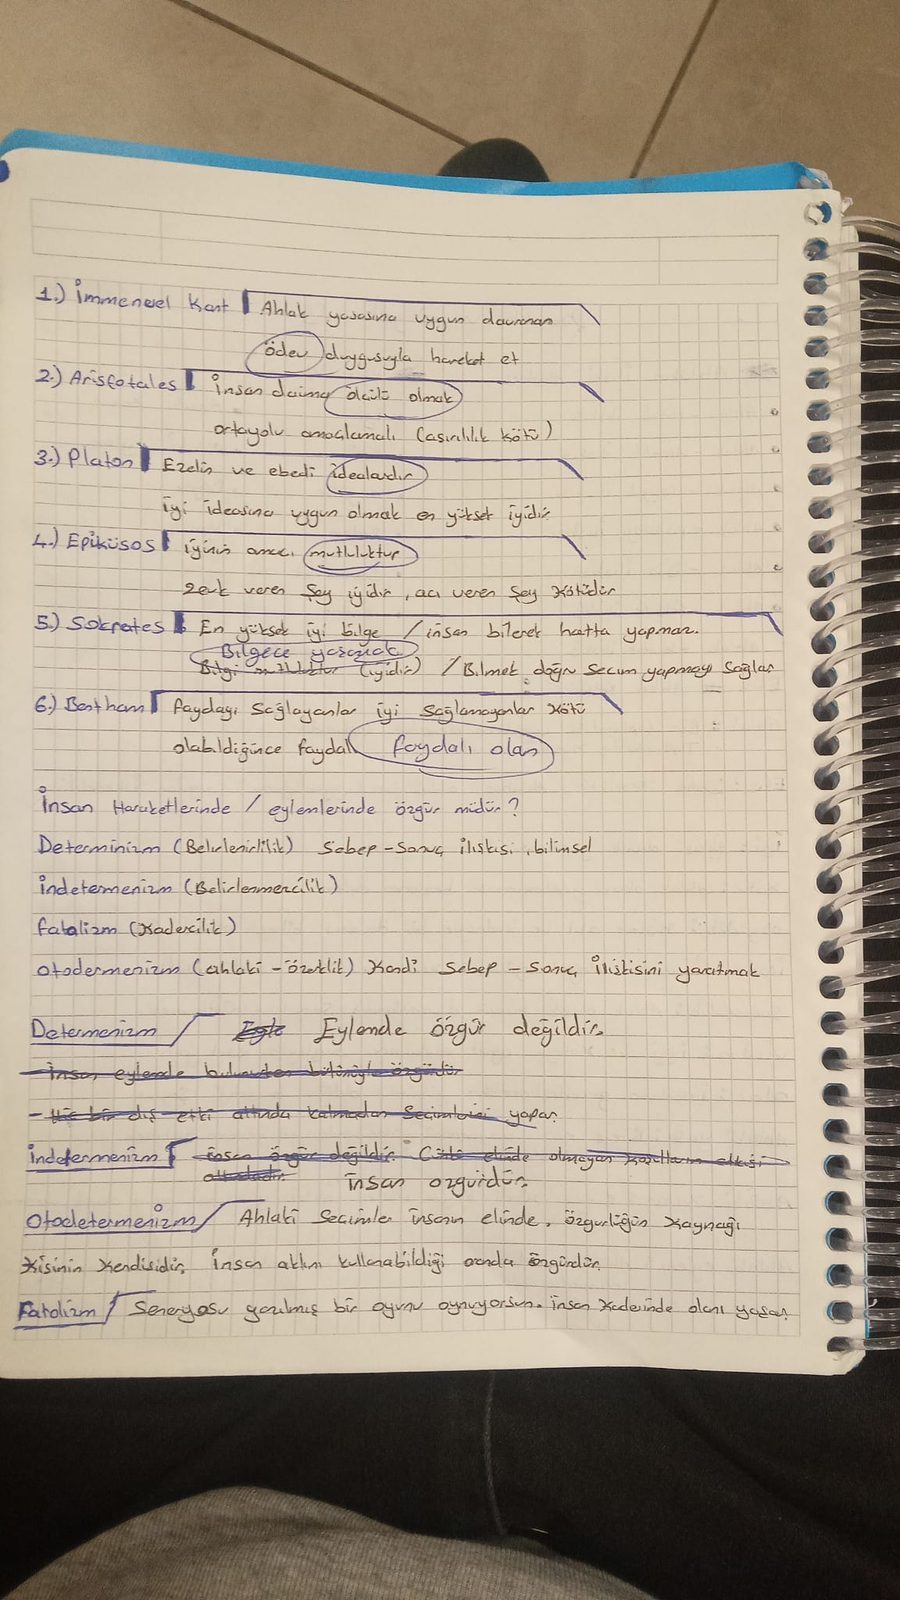 1.) İmmenuel Kant Ahlak yasasına uygun davranan
ödev duygusuyla hareket et
2.) Arisfotales İnsan daima ölçülü olmak
ortayolu amaçlamalı (aşırılılık kötü)
3.) Platon Ezelin ve ebedi idealardır
iyi ideasına uygun olmak en yüksek iyidir.
4.) Epiküsos iyinin amacı mutluluktur
zevk veren şey iyidir, acı veren şey kötüdür
5.) Sokrates En yüksek iyi bilge / insan bilerek hatta yapmaz.
Bilgece yaşamak
Bilgi mutluluktur (iyidir) / Bilmek doğru seçim yapmayı sağlar
6.) Bentham faydayı sağlayanlar iyi sağlamayanlar kötü
olabildiğince faydalı faydalı olan
İnsan Haraketlerinde / eylemlerinde özgür müdür?
Determinizm (Belirlenirlilik) Sebep - Sonuç ilişkisi, bilimsel
İndetermenizm (Belirlenmezcilik)
fatalizm (Kadercilik)
Otodermenizm (ahlaki - özerklik) Kendi Sebep - Sonuç ilişkisini yaratmak
Determenizm Eyle Eylemde özgür değildir.
- İnsan eylemde bulunurken bütünüyle özgürdür
- Hiç bir dış etki altında kalmadan Seçimlerini yapar.
İndetermenizm insan özgür değildir. Çünkü elinde olmayan koşulların etkisi
altındadır. insan özgürdür.
Otodetermenizm Ahlaki Seçimler insanın elinde. özgürlüğün kaynağı
kişinin kendisidir. İnsan aklını kullanabildiği anda özgürdür.
Fatolizm Seneryosu yazılmış bir oyunu oynuyorsun. insan kaderinde olanı yaşar.